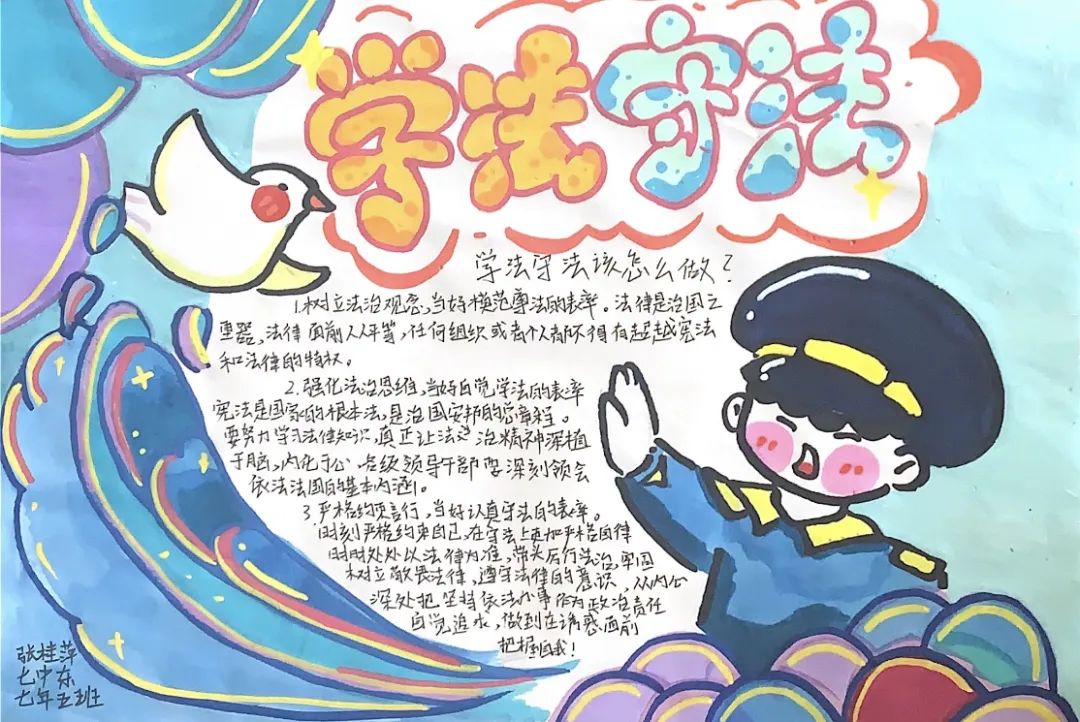 学法守法
学法守法该怎么做？
1.树立法治观念，当好模范尊法的表率。法律是治国之
重器，法律面前人人平等，任何组织或者个人都不得有超越宪法
和法律的特权。
2.强化法治思维，当好自觉学法的表率
宪法是国家的根本法，是治国安邦的总章程。
要努力学习法律知识，真正让法治精神深植
于脑，内化于心。各级领导干部要深刻领会
依法治国的基本内涵。
3.严格约束言行，当好认真守法的表率。
时刻严格约束自己，在守法上更加严格自律
时时处处以法律为准，带头厉行法治，牢固
树立敬畏法律，遵守法律的意识，从内心
深处把坚持依法办事作为政治责任
自觉追求，做到在诱惑面前
把握自我！
张桂萍
七中东
七年五班